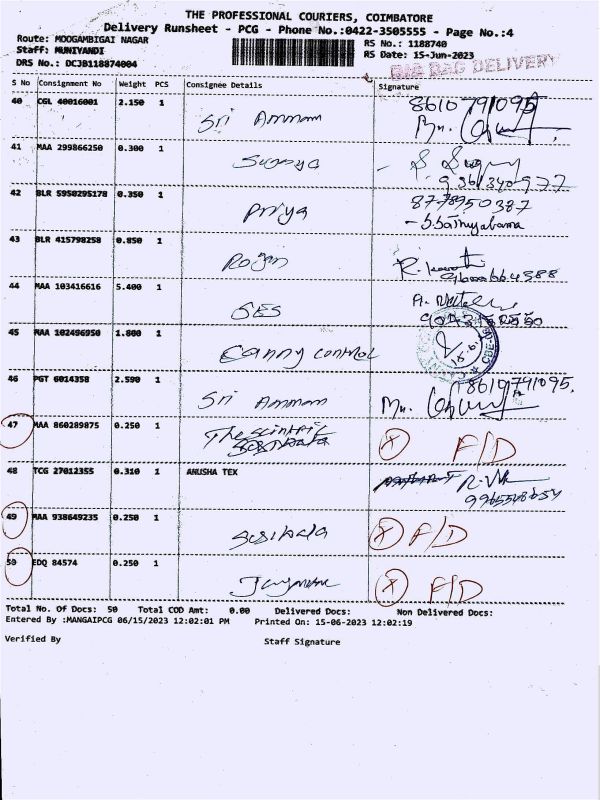 THE PROFESSIONAL COURIERS, COIMBATORE
Delivery Runsheet - PCG - Phone No.:0422-3505555 - Page No.:4
Route: MOOGAMBIGAI NAGAR RS No.: 1188740
Staff: MUNIYANDI RS Date: 15-Jun-2023
DRS No.: DCJB118874004 BIG BAG DELIVERY
S No Consignment No Weight PCS Consignee Details Signature
40 CGL 40016001 2.150 1 Sri Ammam 8610791095
41 MAA 299866250 0.300 1 Surya
42 BLR 5950295178 0.350 1 Priya 8778950387
43 BLR 415798258 0.850 1 Rojan
44 MAA 103416616 5.400 1 SES
45 MAA 102496950 1.800 1 Canny control
46 PGT 6014358 2.590 1 Sri Ammam 8610791095.
47 MAA 860289875 0.250 1 The scintific F/D
48 TCG 27012355 0.310 1 ANUSHA TEX
49 MAA 938649235 0.250 1 Sasibala F/D
50 EDQ 84574 0.250 1 F/D
Total No. Of Docs: 50 Total COD Amt: 0.00 Delivered Docs: Non Delivered Docs:
Entered By :MANGAIPCG 06/15/2023 12:02:01 PM Printed On: 15-06-2023 12:02:19
Verified By Staff Signature